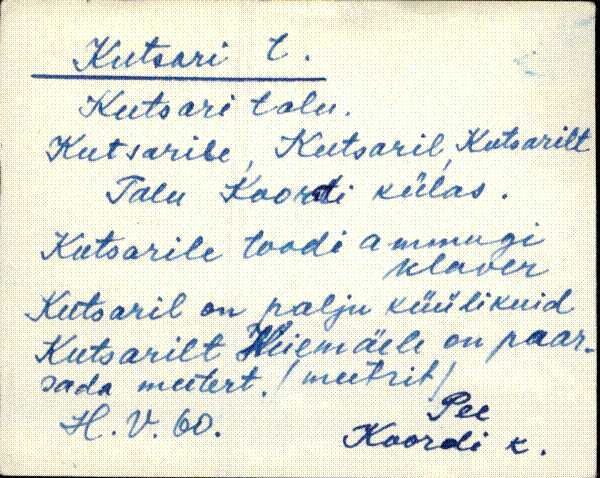 Kutsari t.
Kutsari talu.
Kutsarile, Kutsaril, Kutsarilt
Talu Koordi külas.
Kutsarile toodi ammugi
klaver
Kutsaril on palju küülikuid
Kutsarilt Hiiemäele on paar-
sada meetert. /meetrit/
H. V. 60.
Pee
Koordi k.